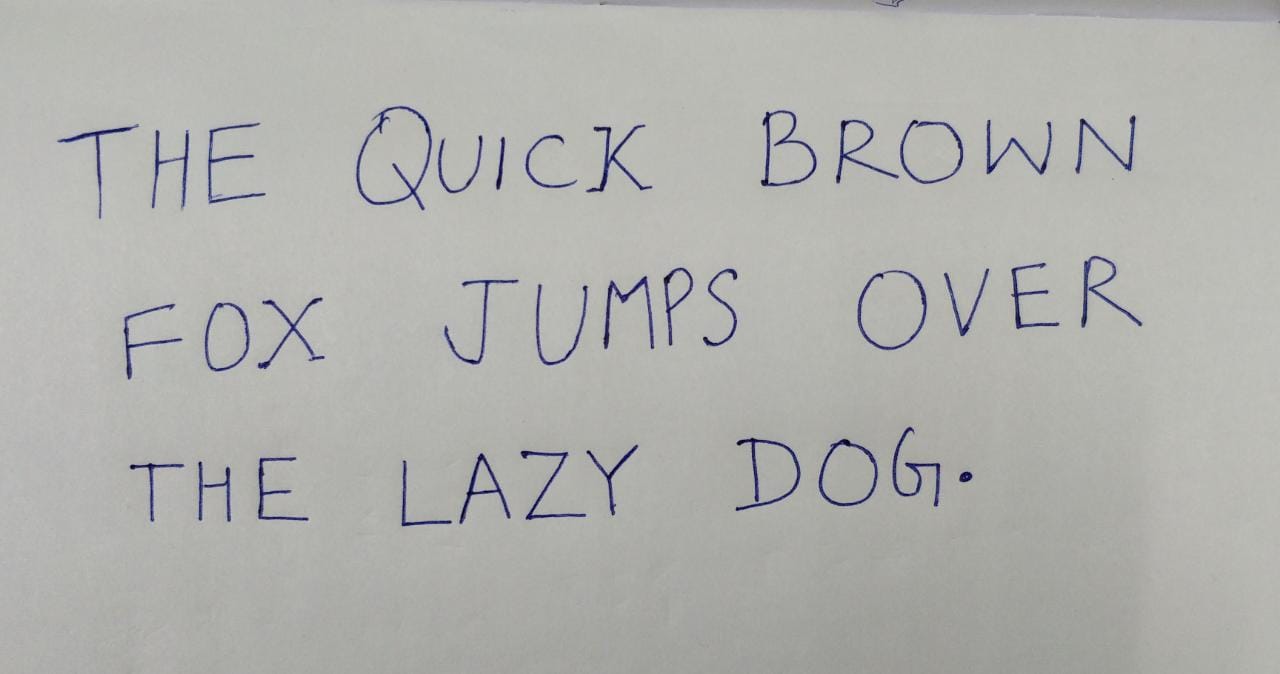 THE QUICK BROWN
FOX JUMPS OVER
THE LAZY DOG.